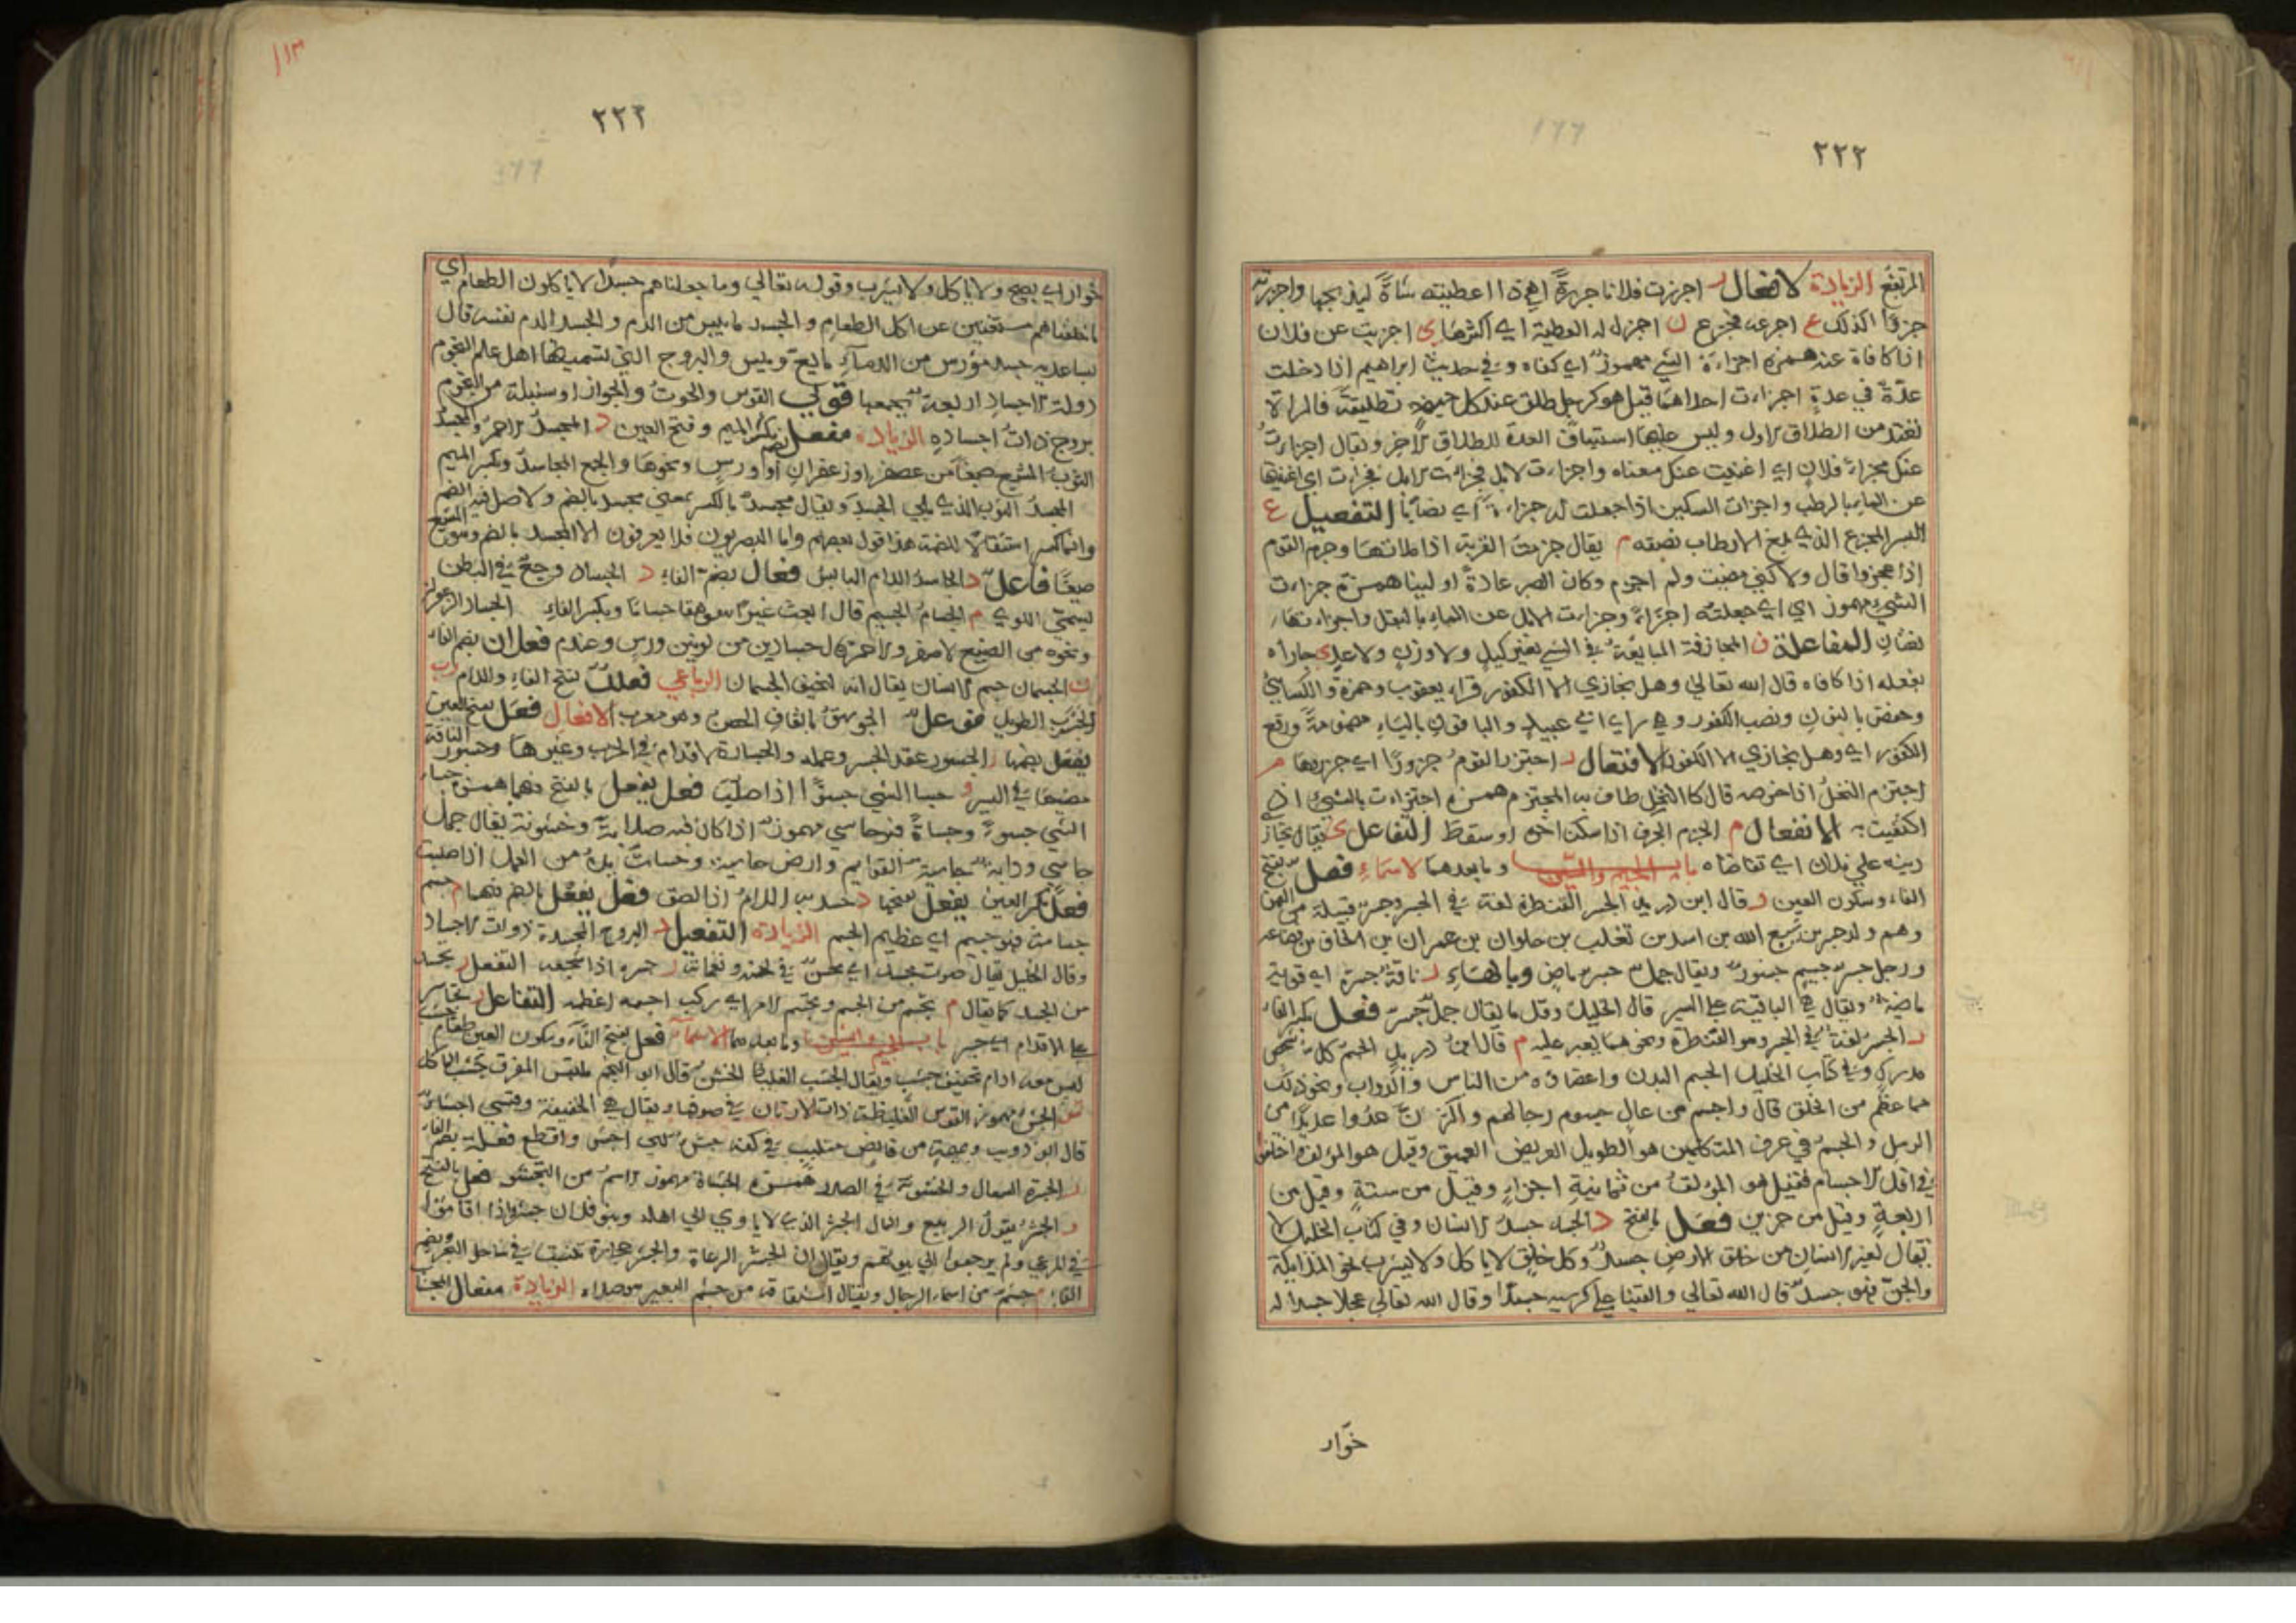 ٢٢٢
المرتفع الزيادة الافعال ر اجزرت فلانا جزرة اي اذا اعطيته شاة ليذبحها واجزرته
جزورا كذلك ع اجزعه فجزع ل اجزل له العطية اي اكثرها ي اجزيت عن فلان
اذا كافاة عنه همزه اجزاءه الشي مهموز اي كفاه وفي حديث ابراهيم اذا دخلت
عدة في عدة اجزاءت احداهما قيل هو كرجل طلق عند كل حيضه تطليقة فالمراة
تعتد من الطلاق الاول وليس عليها استيناف العدة للطلاق الاخر ويقال اجزات
عنك مجزاء فلان اي اغنيت عنك معناه واجزاءت الابل
عن الماء بالرطب واجزات السكين اذا جعلت له جزاءة اي نصابا التفعيل ع
البسر المجزع الذي بلغ الارطاب نصفه م يقال جزمت القربة اذا ملاتها وجزم القوم
اذا عجزوا قال ولاكني مضيت ولم اجزم وكان الصبر عادة اولينا همزة جزاءت
الشيء مهموز اي جعلته اجزاء وجزاءت الابل عن الماء بالبقل
المفاعلة ف المجازفة المبايعة في الشي بغير كيل ولا وزن ولا عدد ي جازاه
بفعله اذا كافاه قال الله تعالى وهل نجازي الا الكفور قراء يعقوب وحمزة والكسائي
وحفص بالنون ونصب الكفور وهي راي ابي عبيد والباقون بالياء مضمومة ورفع
الكفور اي وهل يجازي الا الكفور الافتعال ر اجتزر القوم جزورا اي جزروها م
اجتزم النخل اذا خرصه قال كالنخل طاف به المجتزم همزه اجتزاءت بالشيء اذا
اكتفيت به الانفعال م انجزم الحرف اذا سكن اخره او سقط التفاعل ي يقال تجازا
دينه على فلان اي تقاضاه باب الجيم والسين وما بعدهما الاسماء فعل بفتح
الفاء وسكون العين ر قال ابن دريد الجسر القنطرة لغة في الجسر وجسر قبيلة من اليمن
وهم ولد جسر بن شيع الله بن اسد بن تغلب بن حلوان بن عمران بن الحاف بن قضاعه
ورجل جسر جسيم جسور ويقال جمل جسر ماض وبالهاء ر ناقة جسرة اي قوية
ماضية ويقال هي الباقية على السير قال الخليل وقل ما يقال جمل جسر فعل بكسر الفاء
ر الجسر لغة في الجسر وهو القنطرة ونحوهما يعبر عليه م قال ابن دريد الجسم كل شخص
مدرك وفي كتاب الخليل الجسم البدن واعضاؤه من الناس والدواب ونحو ذلك
مما عظم من الخلق قال واجسم من عال جسوم رجالهم واكثر ان عدوا عديدا من
الرمل والجسم في عرف المتكلمين هو الطويل العريض العميق وقيل هو المؤلف واختلفوا
في اقل الاجسام فقيل هو المؤلف من ثمانية اجزاء وقيل من ستة وقيل من
اربعة وقيل من جزين فعل بالفتح د الجسد جسد الانسان وفي كتاب الخليل لا
يقال لغير الانسان من خلق الارض جسد وكل خلق لا ياكل ولا يشرب نحو الملائكة
والجن فهو جسد قال الله تعالى والقينا على كرسيه جسدا وقال الله تعالى عجلا جسدا له
خوار
١١٣
٢٢٣
خوار اي يصيح ولا ياكل ولا يشرب وقوله تعالى وما جعلناهم جسدا لا ياكلون الطعام اي
ما خلقناهم مستغنين عن اكل الطعام والجسد ما يبس من الدم والجسد الدم نفسه قال
بساعديه جسد مورس من الدماء مايع ويبس والبروج التي تسميها اهل علم النجوم
ذوات الاجساد اربعة يجمعها قولي القوس والحوت والجوزا وسنبلة من النجوم
بروج ذوات اجساده الزيادة مفعل بكسر الميم وفتح العين د المجسد الاحمر والمجسد
الثوب المشبع صبغا من عصفر او زعفران او ورس ونحوها والجمع المجاسد وبكسر الميم
المجسد الثوب الذي يلي الجسد ويقال مجسد بالكسر بمعنى مجسد بالضم والاصل فيه الضم
وانما كسر استثقالا للضمة هذا قول بعضهم واما البصريون فلا يعرفون الا المجسد بالضم وهو المشبع
صبغا فاعل د الجاسد الدم اليابس فعال بضم الفاء د الجساد وجع في البطن
يسمى اللوي م الجسام الجسيم وبكسر الفاء الجساد الزعفران
ونحوه من الصبغ الاصفر والاحمر قال جسادين من لونين ورس وعندم فعلان بضم الفاء
ن الجسمان جسم الانسان يقال انه لنحيف الجسمان الرباعي فعلل بفتح الفاء واللام رب
الجسرب الطويل فوعل الجوسق بالقاف الحصن وهو معرب الافعال فعل بفتح العين
يفعل بضمها ر الجسور عقد الجسر وعمله والجسارة الاقدام في الحرب وغيرها وجسور الناقة
مضيها في السير و جسا الشي جسوا اذا صلب فعل يفعل بالفتح فيهما همزه جساء
الشي جسوءا وجساة فهو جاسي مهموز اذا كان فيه صلابة وخشونة يقال جبل
جاسي ودابة جاسية القوايم وارض جاسية وجسات يده من العمل اذا صلبت
فعل بكسر العين يفعل بفتحها د جسد به الدم اذا لصق فعل يفعل بالضم فيهما م جسم
جسامة فهو جسيم اي عظيم الجسم الزيادة التفعيل د البروج المجسدة ذوات الاجساد
وقال الخليل يقال صوت مجسد اي محسن في لحنه ونغماته ر جسره اذا شجعه التفعل د تجسد
من الجسد كما يقال م تجسم من الجسم وتجسم الامر اي ركب اجسمه اعظمه التفاعل ر تجاسر
على الاقدام اي جسر باب الجيم والشين وما بعدهما الاسماء فعل بفتح الفاء وسكون العين ب طعام جشب
ليس معه ادام تخفيف جشب ويقال الجشب الغليظ الخشن قال ابو النجم
الجشء مهموز القوس الغليظة ذات الارنان في صوتها ويقال هي الخفيفة
قال ابو ذويب ونميمة من قانص متلبب في كفه جشء اجش واقطع فعلة بضم الفاء
ر الجشرة السعال والخشونة في الصدر همزه الجشاة مهموز الاسم من التجشو فعل بالفتح
ر الجشر بقول الربيع والمال الجشر الذي لا ياوي الى اهله وبنو فلان جشر اذا اقاموا
في المرعى ولم يرجعوا الى بيوتهم ويقال ان الجشر الرعاة والجشر حجارة تنبت في ساحل البحر وبضم
الفاء م جشم من اسماء الرجال ويقال اشتقاقه من جشم البعير وهو صدره الزيادة مفعال